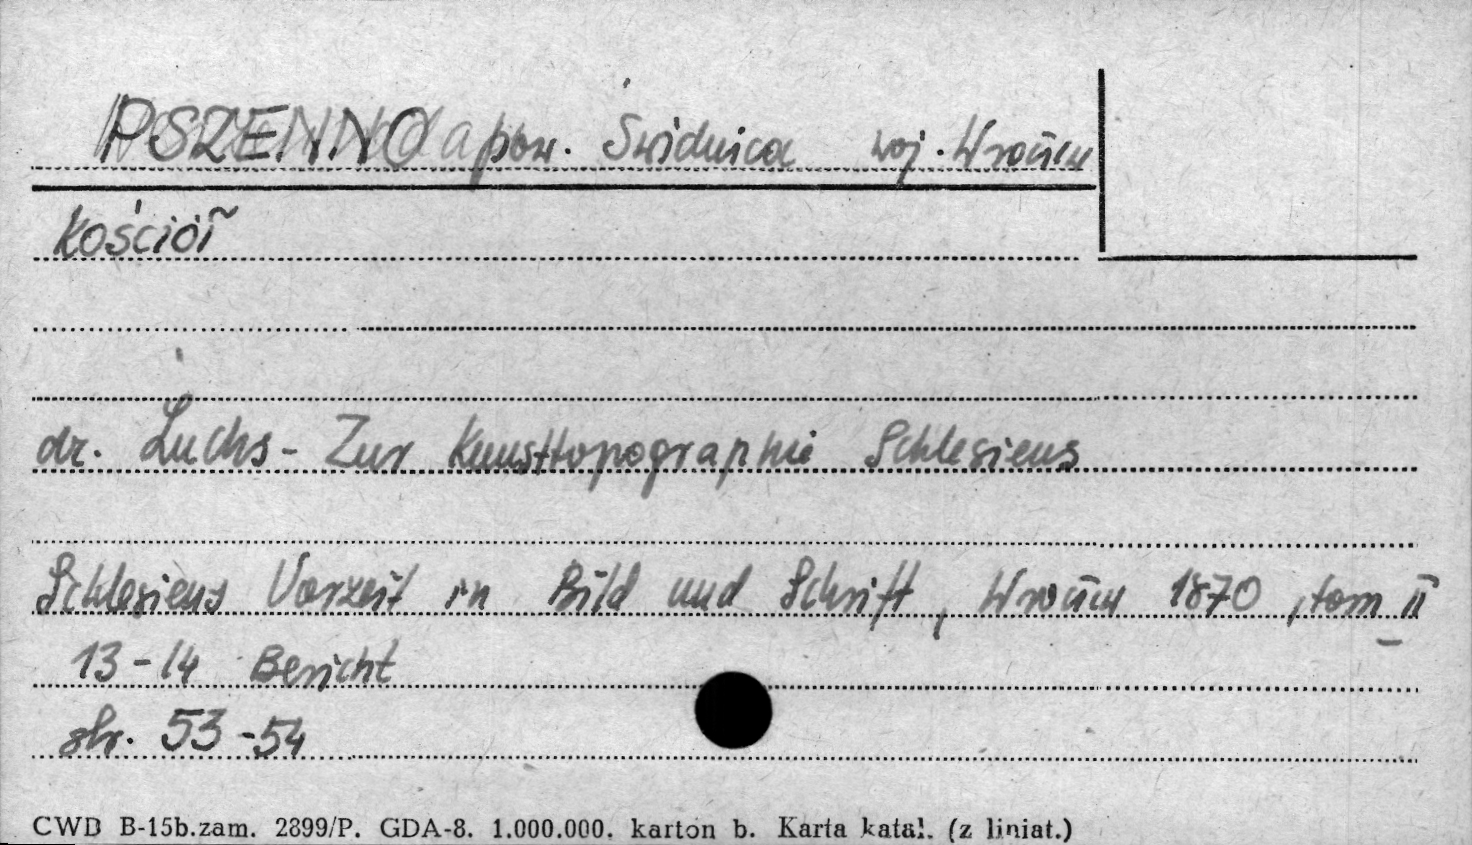 PSZENNO pow. Świdnica woj. Wrocław
Kościół
dr. Luchs - Zur Kunsttopographie Schlesiens
Schlesiens Vorzeit in Bild und Schrift, Wrocław 1870, tom II
13-14 Bericht
str. 53-54
CWD B-15b.zam. 2899/P. GDA-8. 1.000.000. karton b. Karta katal. (z liniat.)